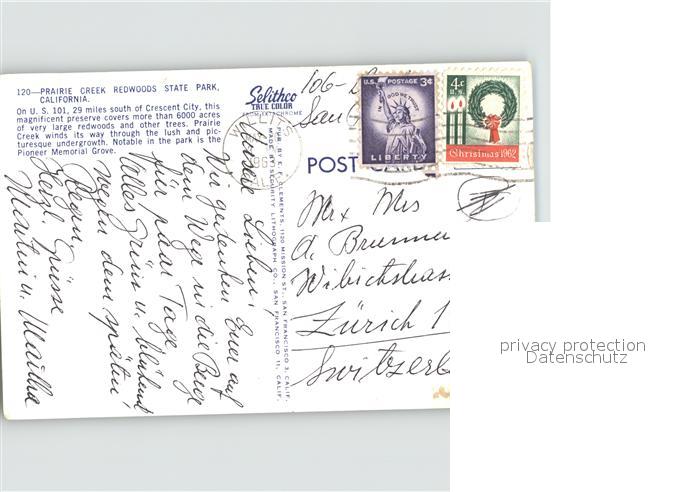 120—PRAIRIE CREEK REDWOODS STATE PARK,
CALIFORNIA.
On U. S. 101, 29 miles south of Crescent City, this
magnificent preserve covers more than 6000 acres
of very large redwoods and other trees. Prairie
Creek winds its way through the lush and pic-
turesque undergrowth. Notable in the park is the
Pioneer Memorial Grove.
Selithco
TRUE COLOR
Meine Lieben,
Wir gedenken Euer auf
dem Wege in die Berge
für paar Tage.
Alles grün u. blühend
wegen dem späten
Regen.
Herzl. Grüsse
Martin u. Martha
PUB. BY E. F. CLEMENTS, 1120 MISSION ST., SAN FRANCISCO 3, CALIF.
MADE BY SECURITY LITHOGRAPH CO., SAN FRANCISCO 11, CALIF.
106-
San
U.S. POSTAGE 3¢
IN GOD WE TRUST
LIBERTY
4¢
U.S.
Christmas 1962
1963
POST
Mr x Mrs
A. Brunner
Zürich 1
Switzerl
privacy protection
Datenschutz